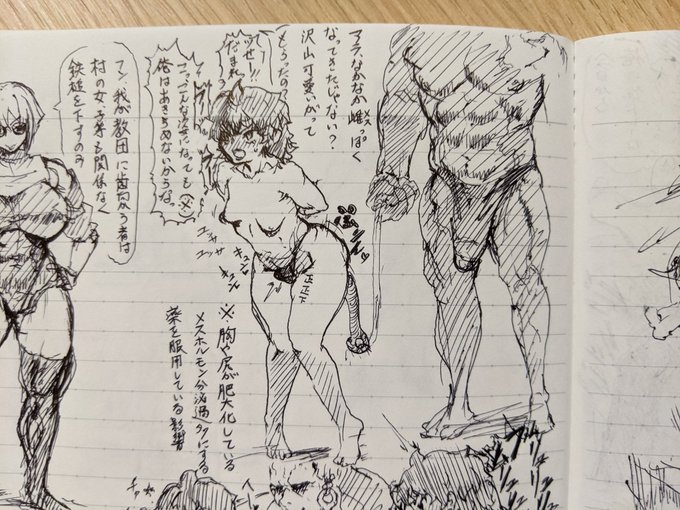 アラ、なかなか雌っぽく
なってきたじゃない？
沢山可愛いがって
もらったの?
うっせ!!
だまれ
こっ…こんな姿になっても
俺はあきらめないからな。
フン、我が教団に歯向う者は
村の女子等も関係なく
鉄槌を下すのみ
ユサ
ユッサ
キュン
キュン
正正下
※胸や尻が肥大化している
メスホルモン分泌過タクにする
薬を服用している影響